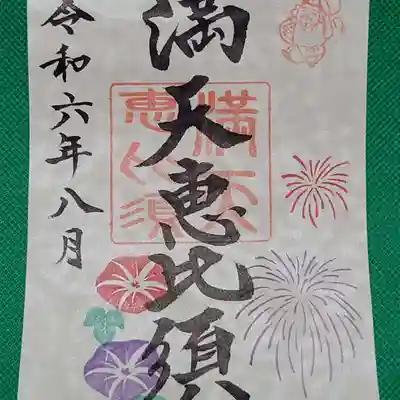 満天恵比須
令和六年八月
満天
恵比須